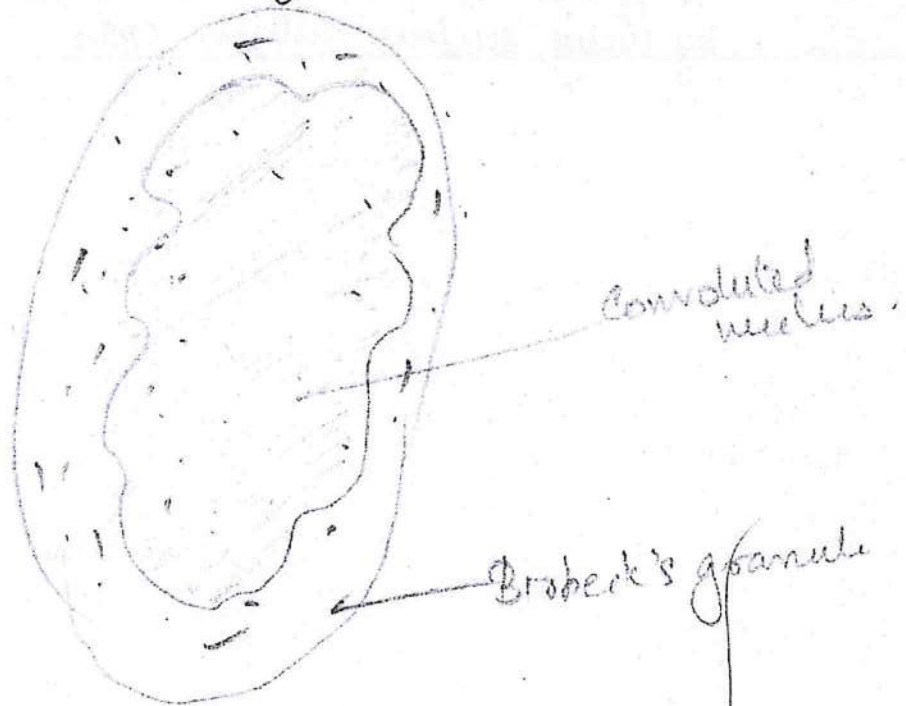 Convoluted
nucleus.
Brobeck's granule